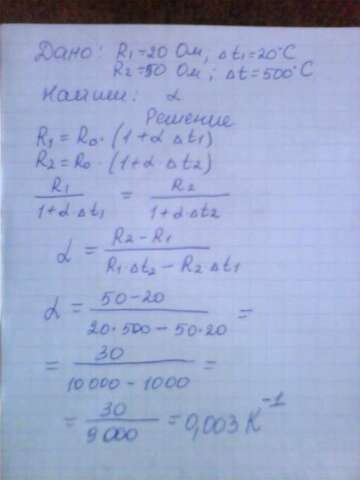 Дано: R₁=20 Ом, Δt₁=20°C
R₂=50 Ом; Δt=500°C
Найти: α
Решение
R₁ = R₀·(1+α Δt₁)
R₂ = R₀·(1+α Δt₂)
R₁/(1+α·Δt₁) = R₂/(1+α·Δt₂)
α = (R₂-R₁)/(R₁Δt₂-R₂Δt₁)
α = (50-20)/(20·500-50·20) =
= 30/(10000-1000) =
= 30/9000 = 0,003 K⁻¹